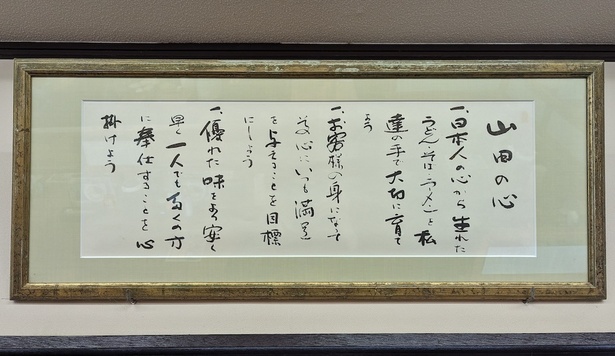 山田の心
一、日本人の心から生れた
うどん・そば・ラーメンを私
達の手で大切に育て
よう
一、お客様の身になって
心にいつも満足
を与えることを目標
にしよう
一、優れた味をより安く
早く一人でも多くの方
に奉仕することを心
掛けよう